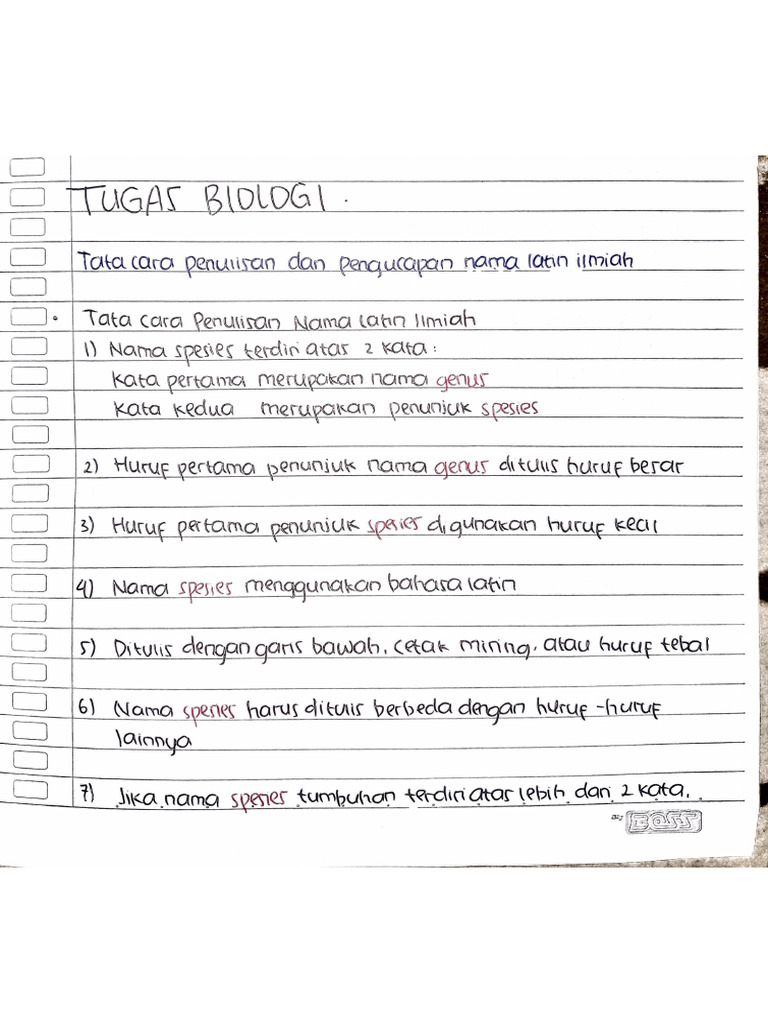 TUGAS BIOLOGI .
Tata cara penulisan dan pengucapan nama latin ilmiah
• Tata Cara Penulisan Nama Latin Ilmiah
1) Nama spesies terdiri atas 2 kata :
Kata pertama merupakan nama genus
Kata kedua merupakan penunjuk spesies
2) Huruf pertama penunjuk nama genus ditulis huruf besar
3) Huruf pertama penunjuk spesies digunakan huruf kecil
4) Nama spesies menggunakan bahasa latin
5) Ditulis dengan garis bawah, cetak miring, atau huruf tebal
6) Nama spesies harus ditulis berbeda dengan huruf-huruf
lainnya
7) Jika nama spesies tumbuhan terdiri atas lebih dari 2 kata.
BOSS